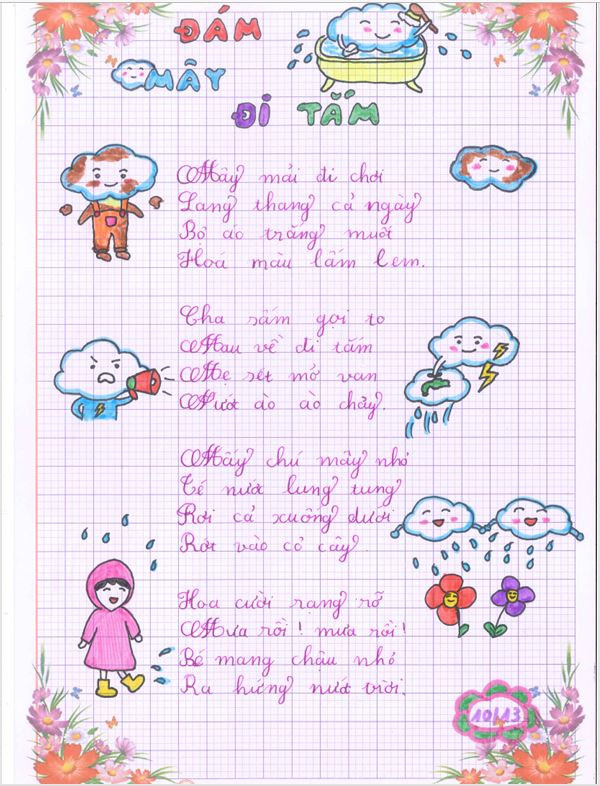 ĐÁM
MÂY
ĐI TẮM
Mây mải đi chơi
Lang thang cả ngày
Bộ áo trắng muốt
Hoá màu lấm lem.
Cha sấm gọi to
Mau về đi tắm
Mẹ sét mở van
Nước ào ào chảy.
Mấy chú mây nhỏ
Té nước lung tung
Rơi cả xuống dưới
Rớt vào cỏ cây
Hoa cười rạng rỡ
Mưa rồi! mưa rồi!
Bé mang chậu nhỏ
Ra hứng nước trời.
10/13